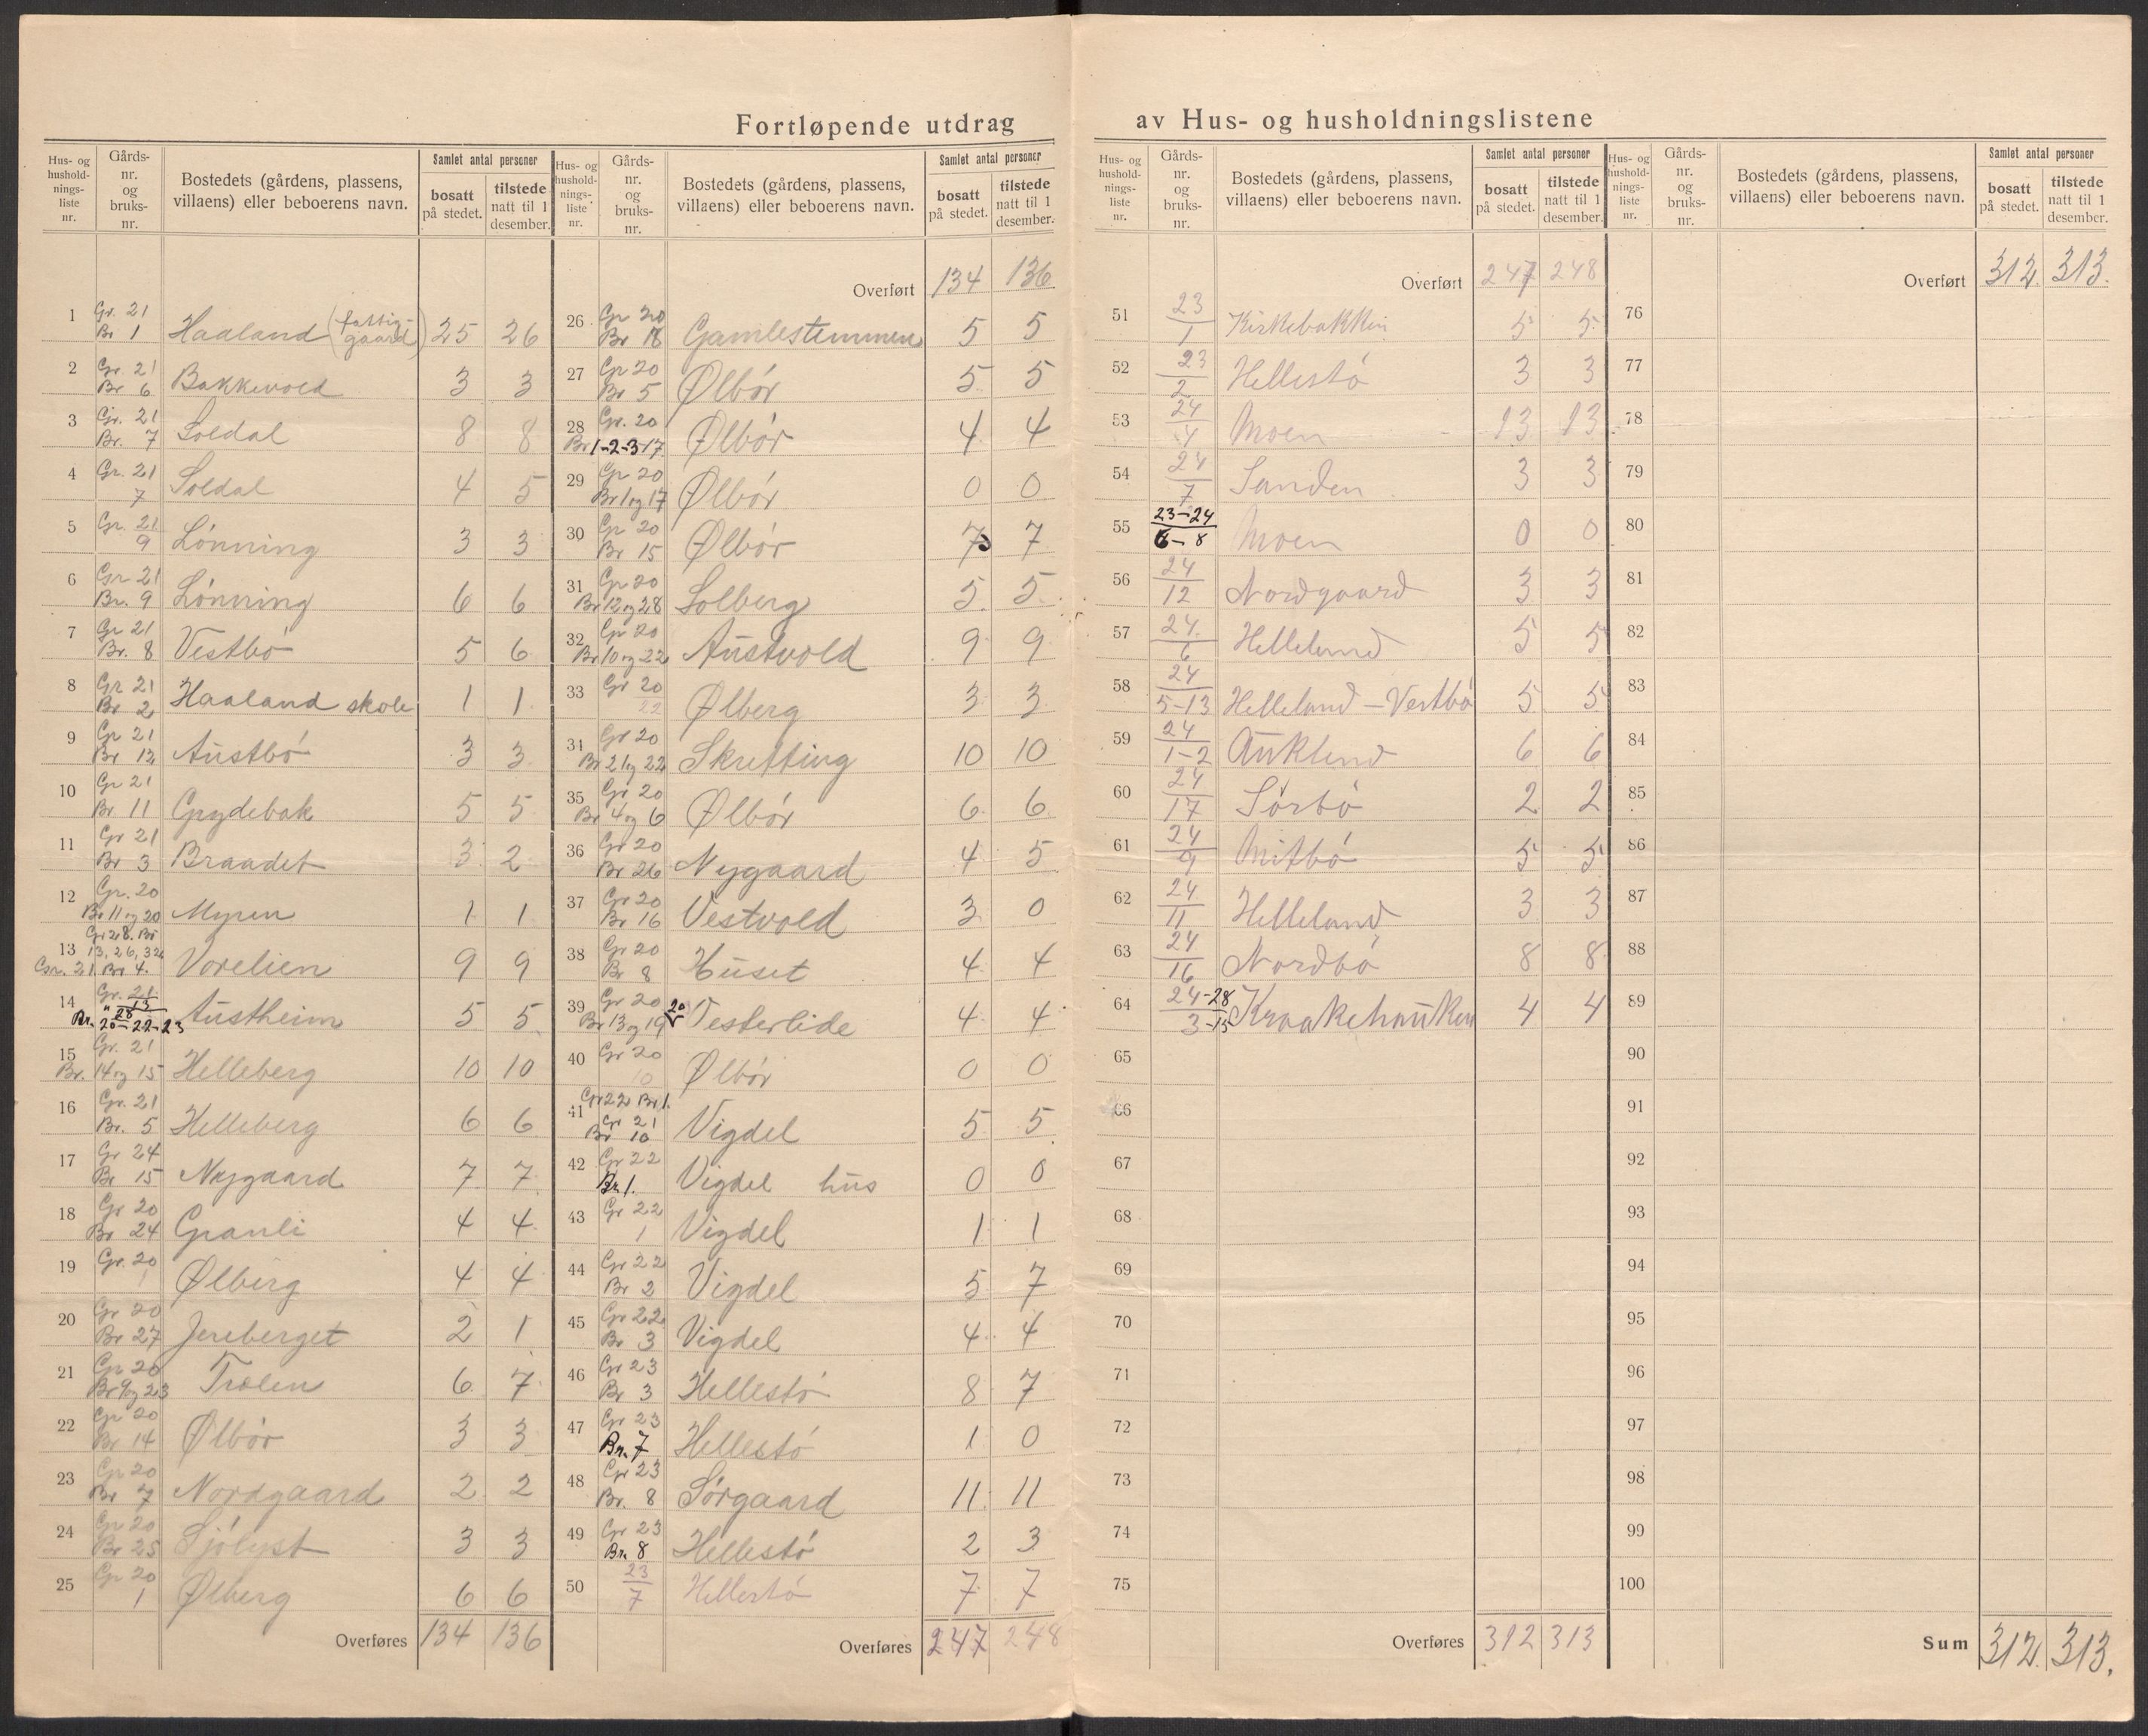 Fortløpende utdrag av Hus- og husholdningslistene
Hus- og husholdnings-liste nr. Gårds-nr. og bruks-nr. Bostedets (gårdens, plassens, villaens) eller beboerens navn. Samlet antal personer bosatt på stedet. tilstede natt til 1 desember.
1 Gr. 21 Br 1 Haaland (fattig-gaard) 25 26
2 Gr. 21 Br 6 Bakkevold 3 3
3 Gr. 21 Br. 7 Soldal 8 8
4 Gr. 21 7 Soldal 4 5
5 Gr. 21 9 Lónning 3 3
6 Gr 21 Br. 9 Lónning 6 6
7 Gr 21 Br. 8 Vestbó 5 6
8 Gr 21 Br 2 Haaland skole 1 1
9 Gr 21 Br 12 Austbó 3 3
10 Gr 21 Br 11 Grydebak 5 5
11 Gr 21 Br 3 Braadet 3 2
12 Gr. 20 Br 11 og 20 Myren 1 1
13 Gr 28. Br 13, 26, 32 Gr. 21 Br 4. Vorelien 9 9
14 Gr. 21 13 " 28 Br. 20-22-23 Austheim 5 5
15 Gr. 21 Br. 14 og 15 Helleberg 10 10
16 Gr. 21 Br. 5 Helleberg 6 6
17 Gr 24 Br 15 Nygaard 7 7
18 Gr 20 Br 24 Granli 4 4
19 Gr. 20 1 Ølberg 4 4
20 Gr 20 Br 27 Jereberget 2 1
21 Gr 20 Br 9 og 23 Trolen 6 7
22 Gr 20 Br 14 Ølbór 3 3
23 Gr 20 Br 7 Nordgaard 2 2
24 Gr 20 Br 25 Sjólyst 3 3
25 Gr 20 1 Ølberg 6 6
Overføres 134 136
Hus- og husholdnings-liste nr. Gårds-nr. og bruks-nr. Bostedets (gårdens, plassens, villaens) eller beboerens navn. Samlet antal personer bosatt på stedet. tilstede natt til 1 desember.
Overført 134 136
26 Gr 20 Br 18 Gamlestemmen 5 5
27 Gr 20 Br 5 Ølbór 5 5
28 Gr. 20 Br 1-2-3-17 Ølbór 4 4
29 Gr 20 Br 1 og 17 Ølbór 0 0
30 Gr 20 Br 15 Ølbór 7 7
31 Gr 20 Br 12 og 28 Solberg 5 5
32 Gr 20 Br 10 og 22 Austvold 9 9
33 Gr 20 22 Ølberg 3 3
34 Gr 20 Br 21 og 22 Skretting 10 10
35 Gr 20 Br 4 og 6 Ølbór 6 6
36 Gr 20 Br 26 Nygaard 4 5
37 Gr 20 Br 16 Vestvold 3 0
38 Gr 20 Br 8 Huset 4 4
39 Gr 20 Br 13 og 19 20 Vesterlide 4 4
40 Gr 20 10 Ølbór 0 0
41 Gr 22 Br 1. Gr 21 Br 10 Vigdel 5 5
42 Gr 22 Br 1. Vigdel hus 0 0
43 Gr 22 1 Vigdel 1 1
44 Gr 22 Br 2 Vigdel 5 7
45 Gr 22 Br 3 Vigdel 4 4
46 Gr 23 Br 3 Hellestó 8 7
47 Gr 23 Br. 7 Hellestó 1 0
48 Gr 23 Br. 8 Sórgaard 11 11
49 Gr 23 Br. 8 Hellestó 2 3
50 23 7 Hellestó 7 7
Overføres 247 248
Hus- og husholdnings-liste nr. Gårds-nr. og bruks-nr. Bostedets (gårdens, plassens, villaens) eller beboerens navn. Samlet antal personer bosatt på stedet. tilstede natt til 1 desember.
Overført 247 248
51 23 1 Kirkebakken 5 5
52 23 2 Hellestó 3 3
53 24 4 Moen 13 13
54 24 7 Sanden 3 3
55 23-24 6-8 Moen 0 0
56 24 12 Nordgaard 3 3
57 24 6 Helleland 5 5
58 24 5-13 Helleland - Vestbó 5 5
59 24 1-2 Aukland 6 6
60 24 17 Sórbó 2 2
61 24 9 Mitbó 5 5
62 24 11 Helleland 3 3
63 24 16 Nordbó 8 8
64 24-28 3-15 Kraakehauken 4 4
65
66
67
68
69
70
71
72
73
74
75
Overføres 312 313
Hus- og husholdnings-liste nr. Gårds-nr. og bruks-nr. Bostedets (gårdens, plassens, villaens) eller beboerens navn. Samlet antal personer bosatt på stedet. tilstede natt til 1 desember.
Overført 312 313.
76
77
78
79
80
81
82
83
84
85
86
87
88
89
90
91
92
93
94
95
96
97
98
99
100
Sum 312. 313.